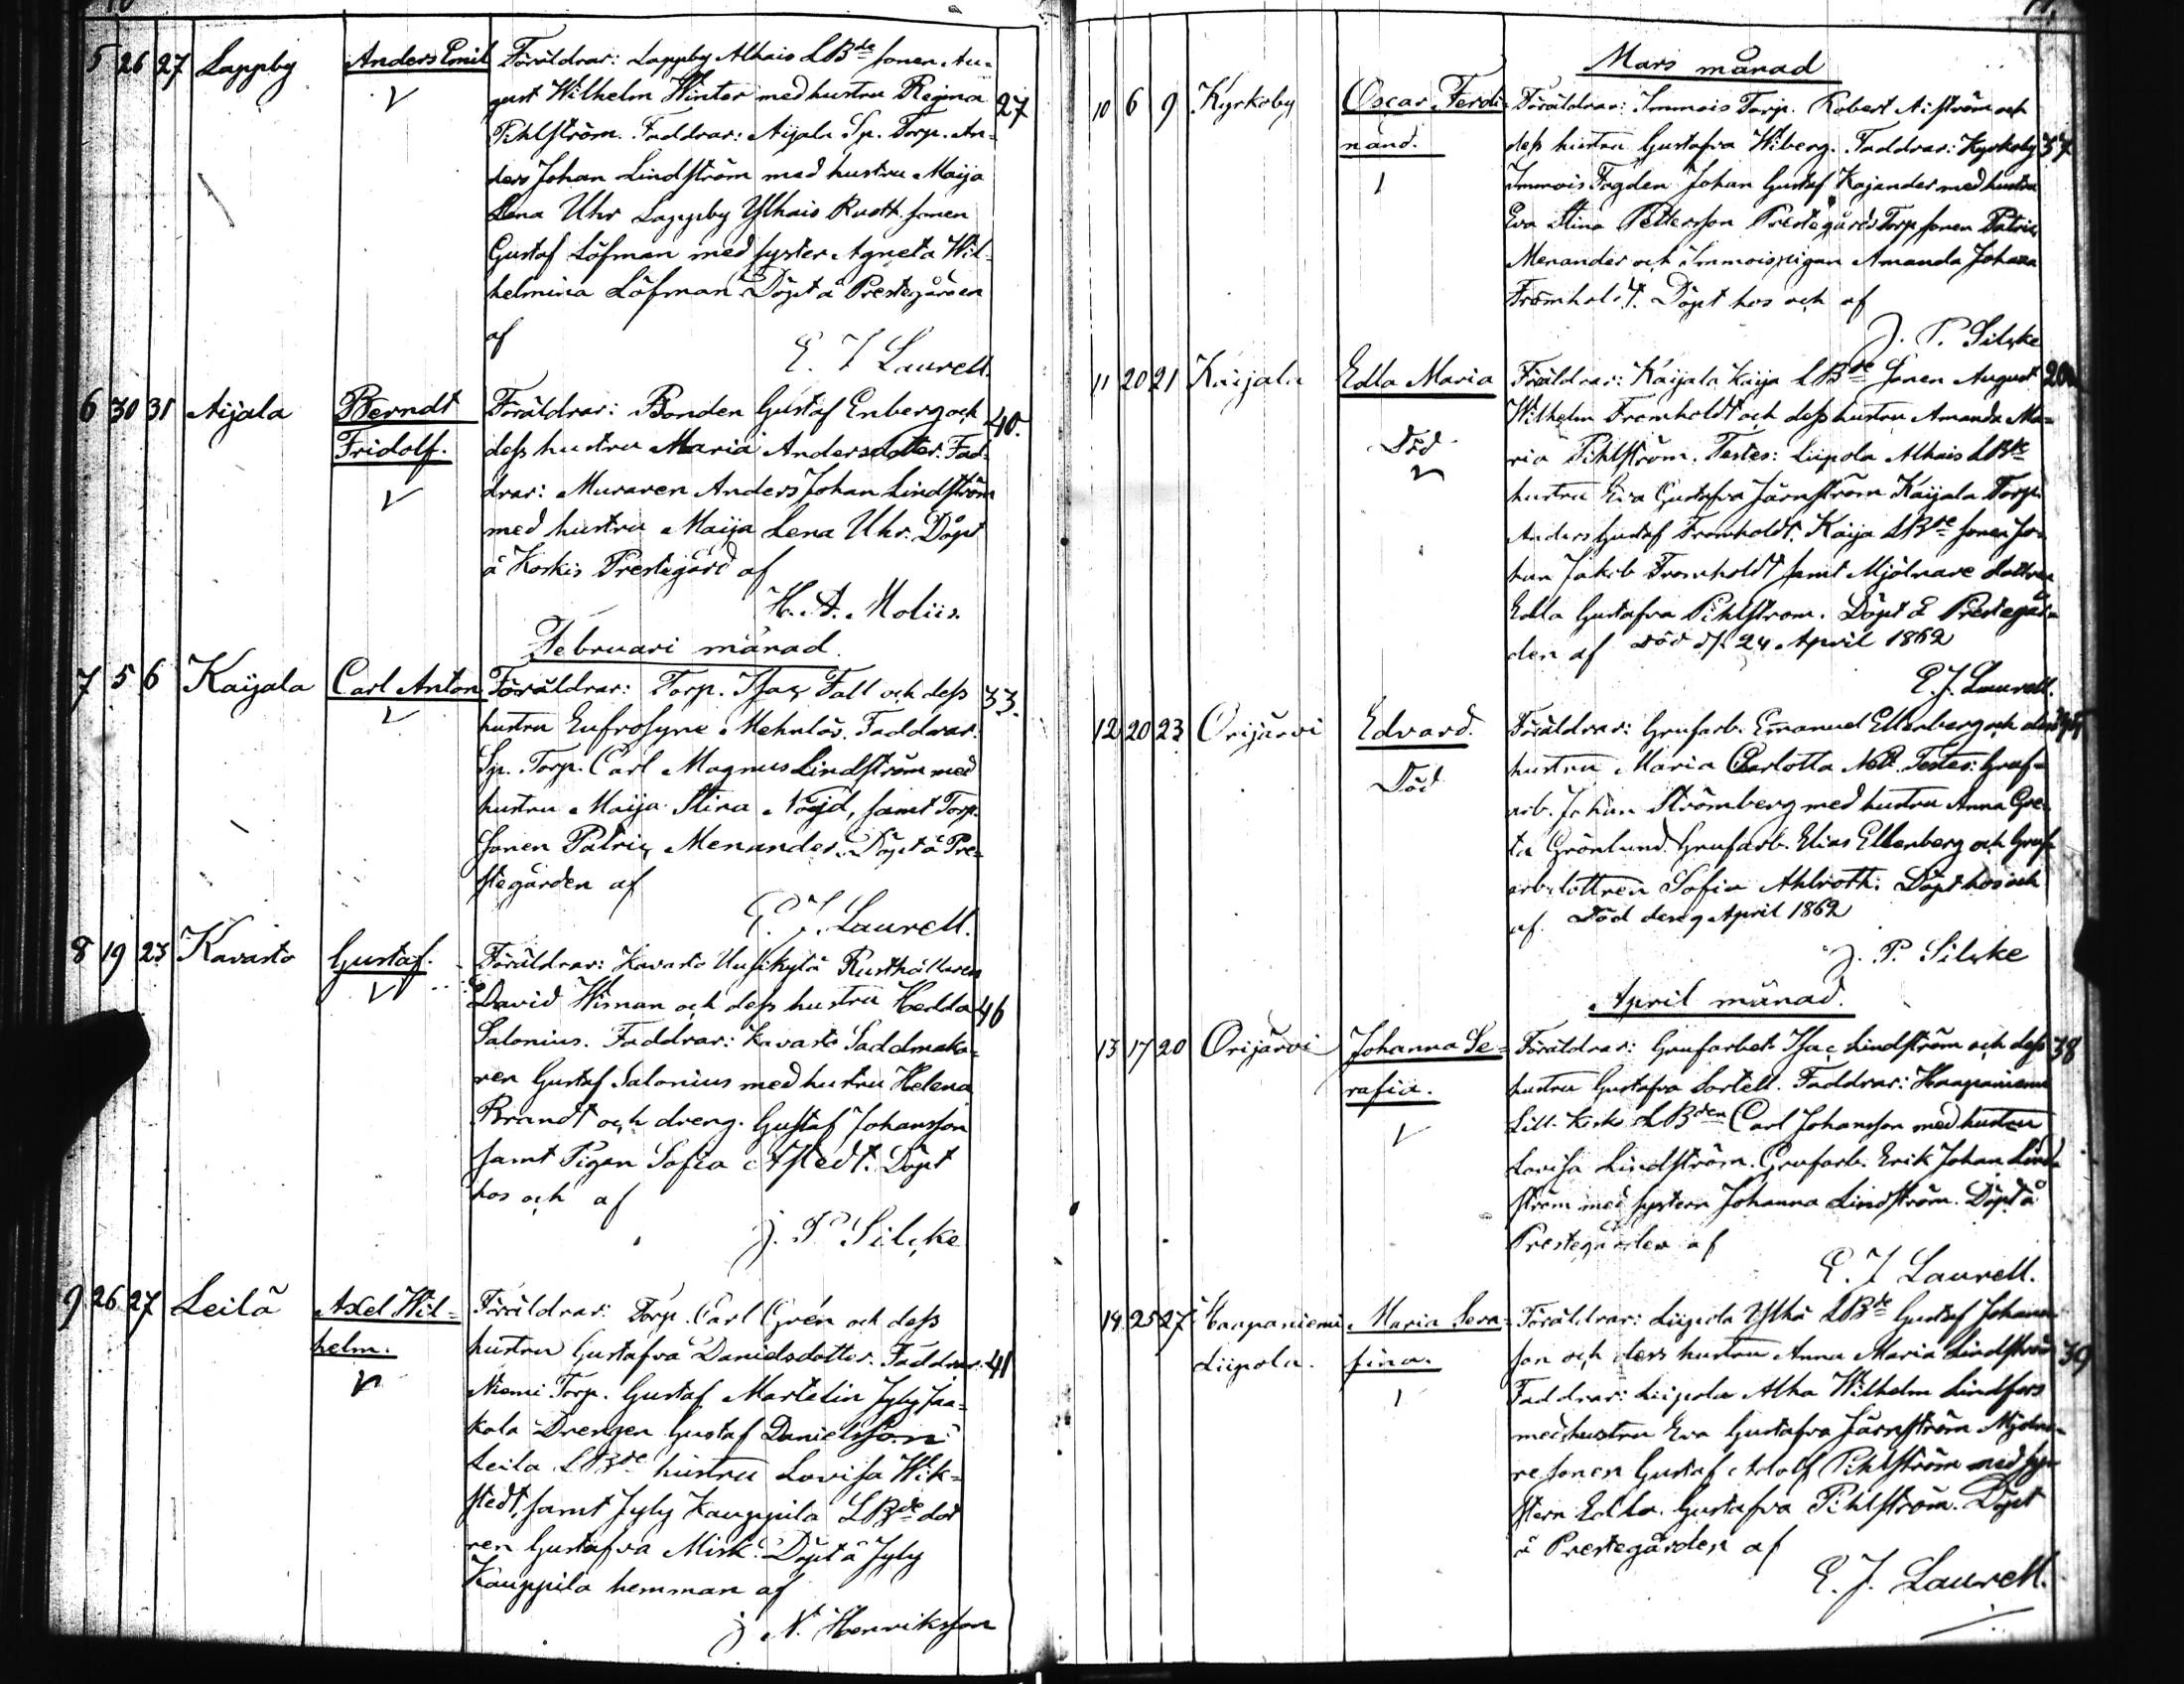 5 26 27 Lappby Anders Emil Föräldrar: Lappby Alhais LBde sonen Au-
gust Wilhelm Winter med hustru Regina 27
Pihlström. Faddrar: Aijala Sp. Torp. An-
ders Johan Lindström med hustru Maija
Lena Uhr Lappby Ylhais Rusth. sonen
Gustaf Löfman med syster Agneta Wil-
helmina Löfman. Döpt å Prestegården
af
E. J Laurell.
6 30 31 Aijala Berndt Föräldrar: Bonden Gustaf Enberg och 40.
Fridolf. dess hustru Maria Andersdotter. Fad-
drar: Muraren Anders Johan Lindström
med hustru Maija Lena Uhr. Döpt
å Koskis Prestegård af
H. A. Moliis.
Februari månad.
7 5 6 Kaijala Carl Anton Föräldrar: Torp. Isac Fall och dess 33.
hustru Eufrosyne Mehnlös. Faddrar.
Sp. Torp. Carl Magnus Lindström med
hustru Maija Stina Nöjd, samt Torp.
sonen Patric Menander. Döpt å Pre-
stegården af
E. J. Laurell.
8 19 23 Kavasto Gustaf. Föräldrar: Kavasto Uusikylä Rusthållaren
David Wiman och dess hustru Hedda 46
Salonius. Faddrar: Kavasto Saddmaka-
ren Gustaf Salonius med hustru Helena
Brandt och dreng. Gustaf Johansson
samt Pigan Sofia Afstedt. Döpt
hos och af
J. P Silcke
9 26 27 Leilä Axel Wil- Föräldrar: Torp. Carl Grén och dess
helm. hustru Gustafva Danielsdotter. Faddrar: 41
Niemi Torp. Gustaf Martelin Jyly Jaa-
kola Drengen Gustaf Danielsson
Leila LBde hustru Lovisa Wik-
stedt, samt Jyly Kauppila LBde dot
ren Gustafva Misk. Döpt å Jyly
Kauppila hemman af
J N. Henriksson
Mars månad
10 6 9 Kyrkoby Oscar Ferdi- Föräldrar: Immois Torp. Robert Aiström och
nand. dess hustru Gustafva Wiberg. Faddrar: Kyrkoby 37
Immois Fogden Johan Gustaf Kajander med hustru
Eva Stina Pettersson Prestegårds Torp sonen Patric
Menander och Immois pigan Amanda Johana
Fromholdt. Döpt hos och af
J. P. Silcke
11 20 21 Kaijala Edla Maria Föräldrar: Kaijala Kaija LBde sonen August
Wilhelm Fromholdt och dess hustru Amanda Ma-
Död ria Pihlström. Testes: Liipola Alhais LBds
hustru Eva Gustafva Järnström Kaijala Torp.
Anders Gustaf Fromholdt. Kaija LBde sonen Jo-
han Jakob Fromholdt samt Mjölnare dottren
Edla Gustafva Pihlström. Döpt å Prestegår-
den af Död d. 24 April 1862
E. J. Laurell.
12 20 23 Orijärvi Edvard. Föräldrar: Grufarb. Emanuel Ellenberg och dess
Död hustru Maria Charlotta Nöd. Testes: Gruf-
arb. Johan Strömberg med hustru Anna Gre-
ta Grönlund. Grufarb. Elias Ellenberg och Gruf-
arb. dottren Sofia Ahlroth. Döpt hos och
af. Död den 9 April 1862
J. P. Silcke
April månad.
13 17 20 Orijärvi Johanna Se- Föräldrar: Grufarbet. Isac Lindström och dess 38
rafia. hustru Gustafva Sortell. Faddrar: Haapaniemi
Lill- Kesk LBden Carl Johansson med hustru
Lovisa Lindström. Grufarb. Erik Johan Lind-
ström med systern Johanna Lindström. Döpt å
Prestegården af
E. J Laurell.
14 25 27 Haapaniemi Maria Sera- Föräldrar: Liipola Ylhä LBde Gustaf Johans-
Liipola. fina. son och dess hustru Anna Maria Lindström 39
Faddrar: Liipola Alha Wilhelm Lindfors
med hustru Eva Gustafva Järnström Mjölna-
re sonen Gustaf Adolf Pihlström med sy-
stern Edla Gustafva Pihlström. Döpt
å Prestegården af
E. J. Laurell.